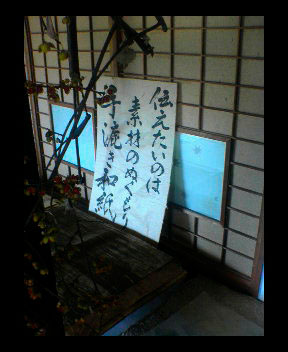 伝えたいのは
素材のぬくもり
手漉き和紙